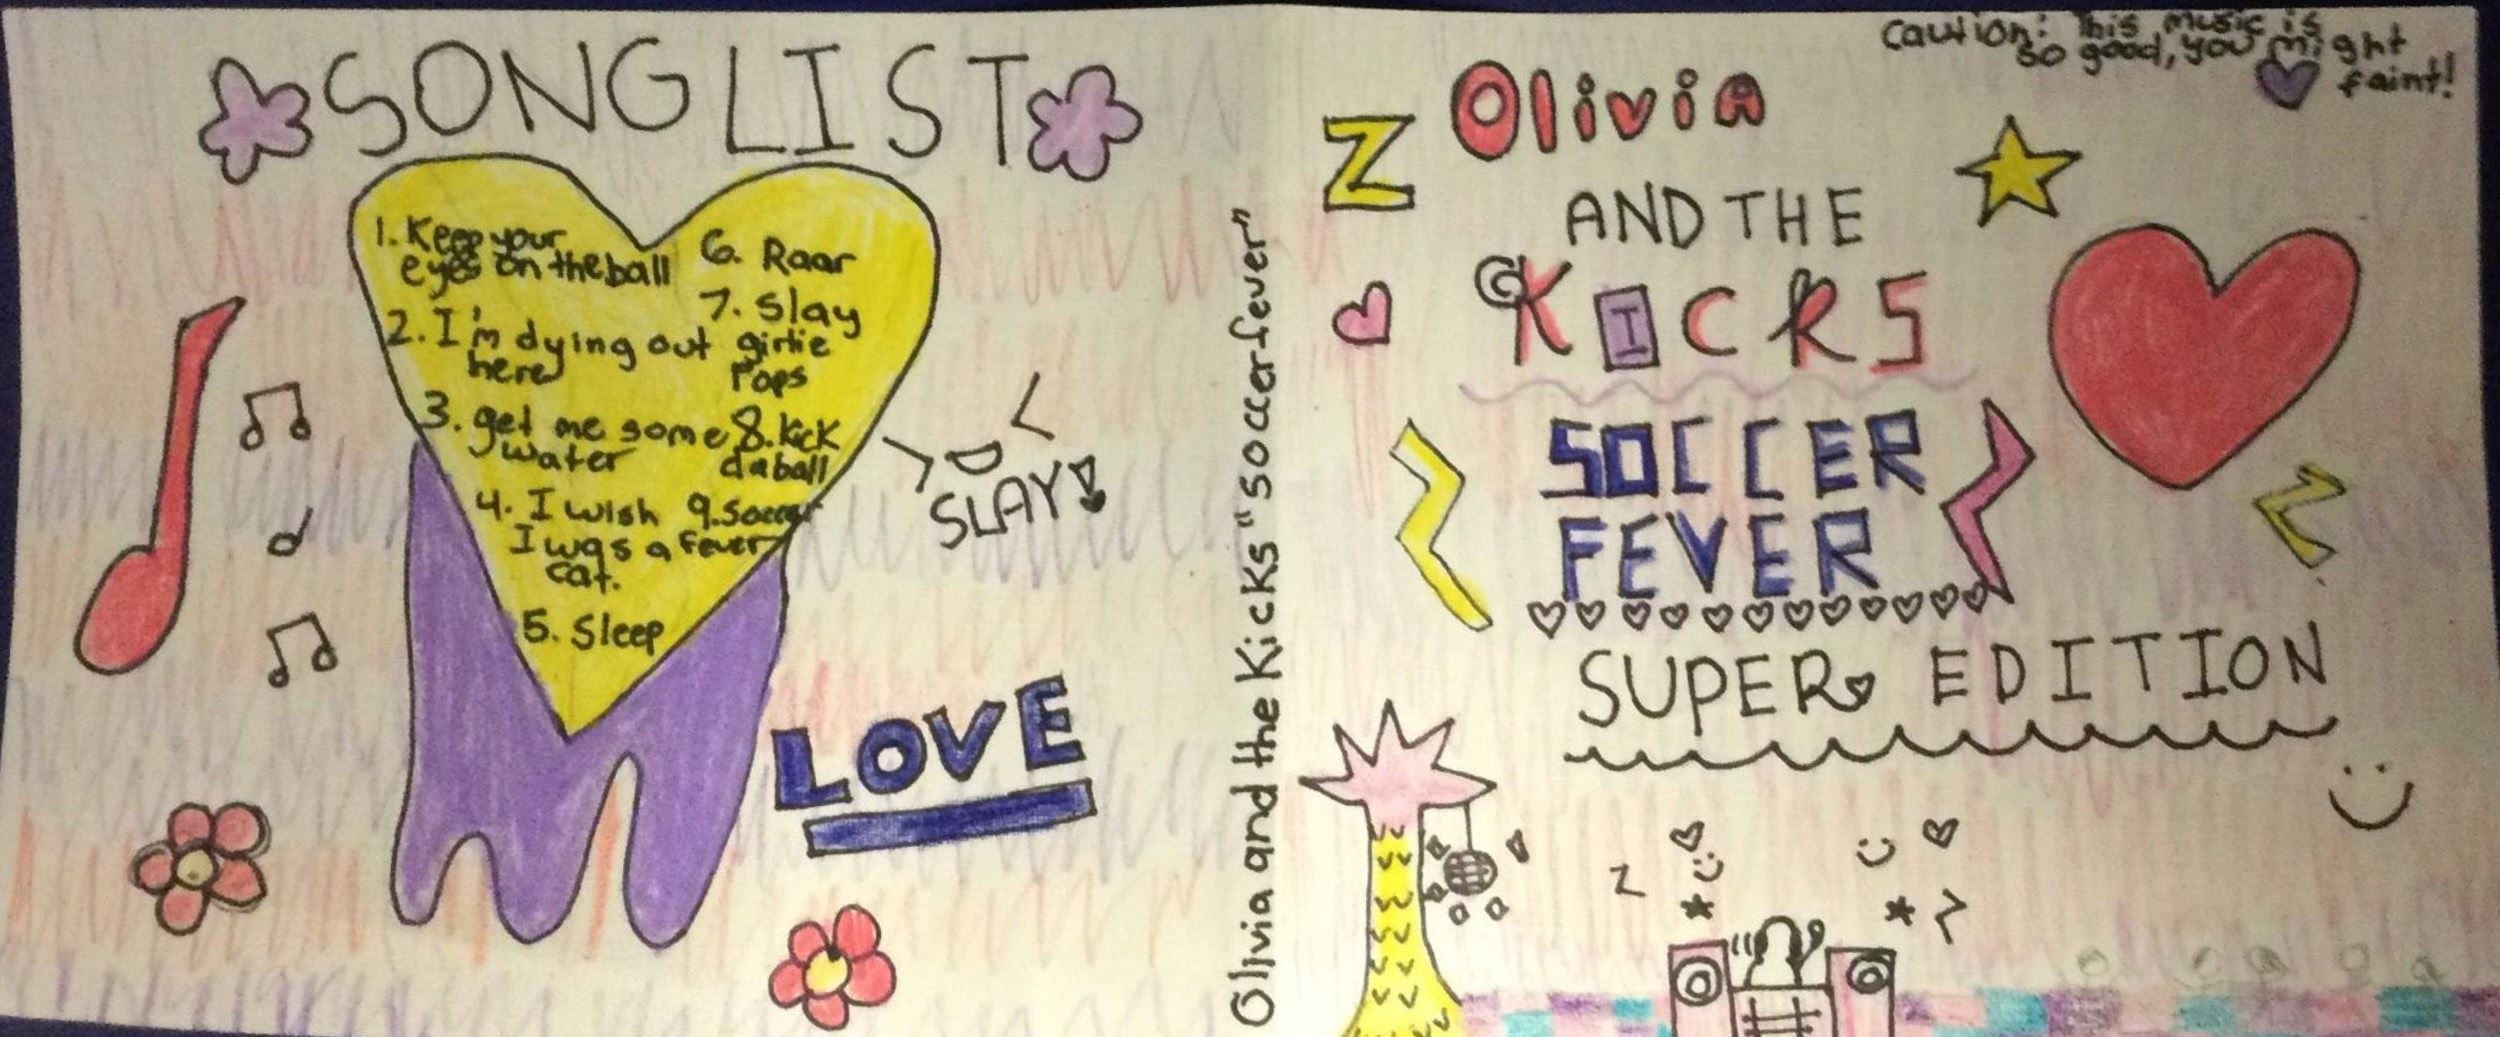 SONG LIST
1. Keep your
eyes on the ball
2. I'm dying out
here
3. get me some
water
4. I wish
I was a
cat.
5. Sleep
6. Raar
7. Slay
girlie
Pops
8. kick
da ball
9. Soccer
fever
SLAY!
LOVE
Olivia and the Kicks "soccer fever"
Caution: This music is
so good, you might
faint!
Z
Olivia
AND THE
KICKS
SOCCER
FEVER
SUPER EDITION